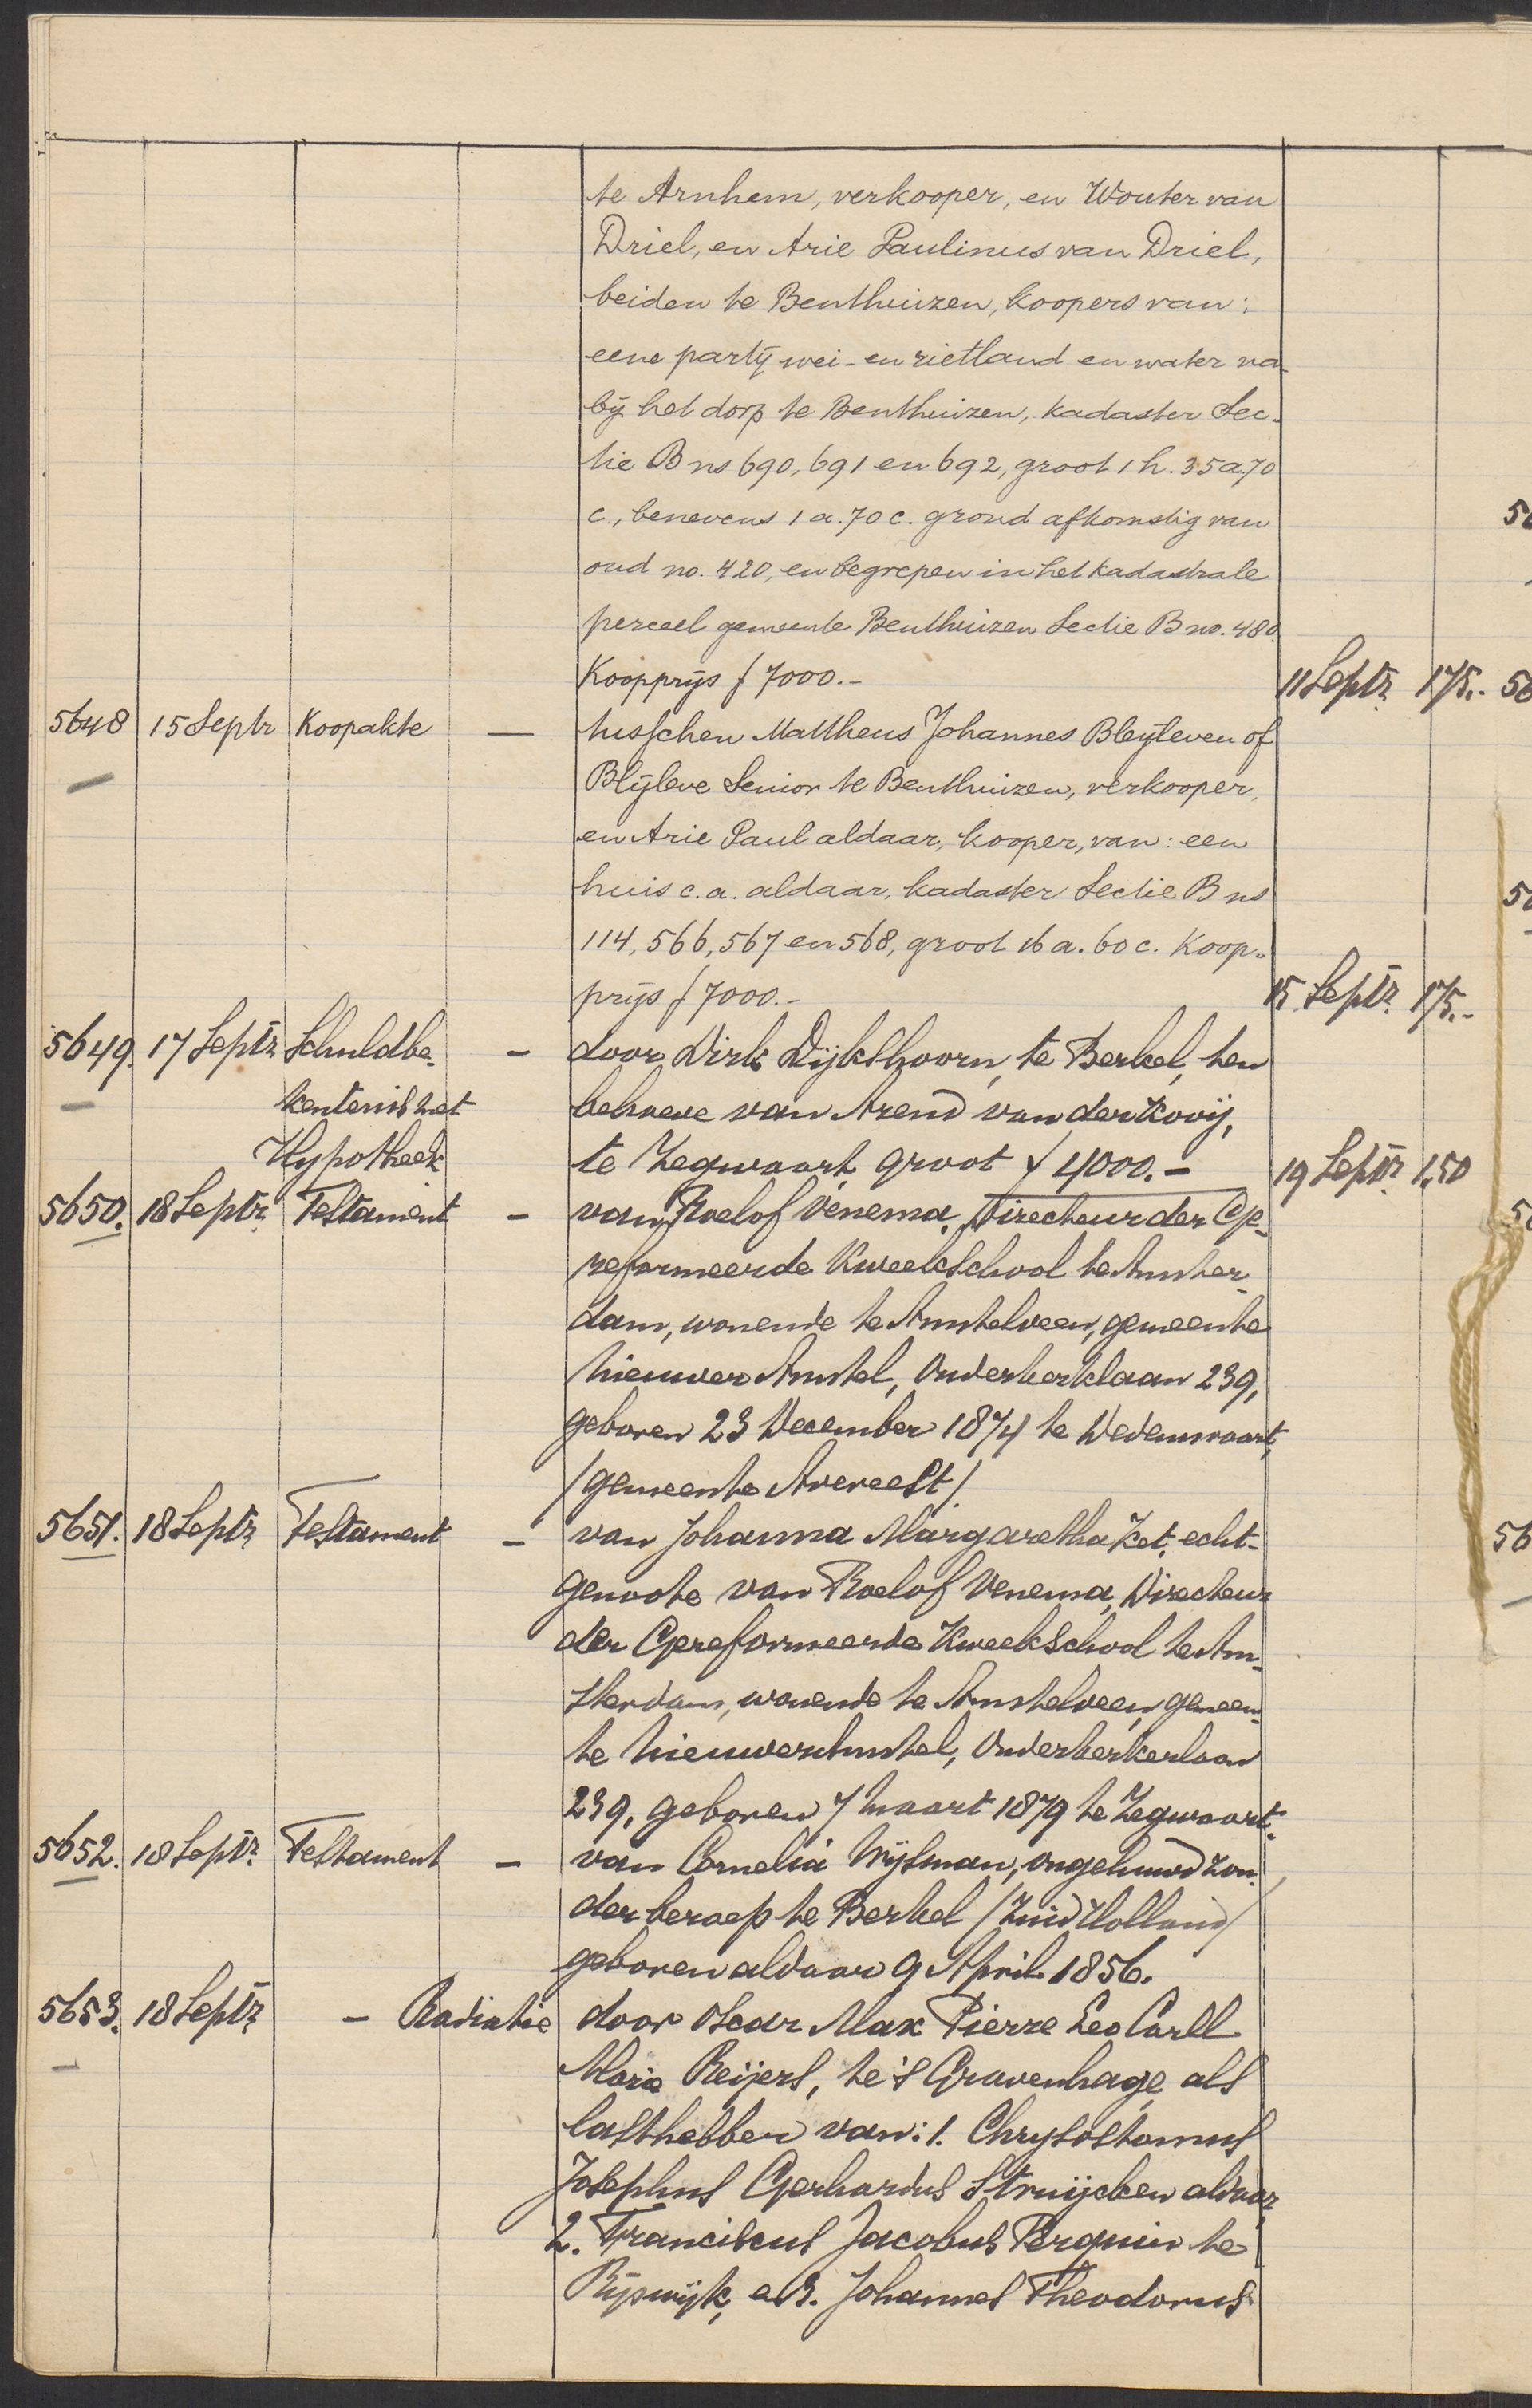 te Arnhem, verkooper, en Wouter van
Driel, en Arie Paulinus van Driel,
beiden te Benthuizen, koopers van:
eene partij wei- en rietland en water na-
bij het dorp te Benthuizen, kadaster Sec-
tie B ns 690, 691 en 692, groot 1 h. 35 a 70
c., benevens 1 a. 70 c. grond afkomstig van
oud no. 420, en begrepen in het kadastrale
perceel gemeente Benthuizen Sectie B no. 480.
Koopprijs f 7000.- 11 Septr. 175.-
5648 15 Septr Koopakte — tusschen Mattheus Johannes Bleyleven of
Blijleve Senior te Benthuizen, verkooper,
en Arie Paul aldaar, kooper, van: een
huis c.a. aldaar, kadaster Sectie B ns
114, 566, 567 en 568, groot 16 a. 60 c. Koop-
prijs f 7000.- 15 Septr. 175.-
5649. 17 Septr Schuldbe- - door Dirk Dijkshoorn, te Berkel, ten
kentenis met behoeve van Arend van der Kooij,
Hypotheek te Zegwaart, groot f 4000.- 19 Septr. 1,50
5650. 18 Septr. Testament - van Roelof Venema, Directeur der Ge-
reformeerde Kweekschool te Amster-
dam, wonende te Amstelveen, gemeente
Nieuwer Amstel, Ouderkerklaan 239,
geboren 23 December 1874 te Dedemsvaart,
/gemeente Avereest/.
5651. 18 Septr Testament - van Johanna Margaretha Ket, echt-
genoote van Roelof Venema, Directeur
der Gereformeerde Kweekschool te Am-
sterdam, wonende te Amstelveen, gemeen-
te Nieuwer Amstel, Ouderkerkerlaan
239, geboren 7 Maart 1879 te Zegwaart.
5652. 18 Septr. Testament - van Cornelia Wijsman, ongehuwd zon-
der beroep te Berkel /Zuid Holland/
geboren aldaar 9 April 1856.
5653. 18 Septr - Radiatie door Oscar Max Pierre Leo Carll
Marie Reijers, te 's Gravenhage, als
lasthebber van: 1. Chrysostomus
Josephus Gerhardus Struijcken aldaar,
2. Franciscus Jacobus Perquin te
Rijswijk, en 3. Johannes Theodorus